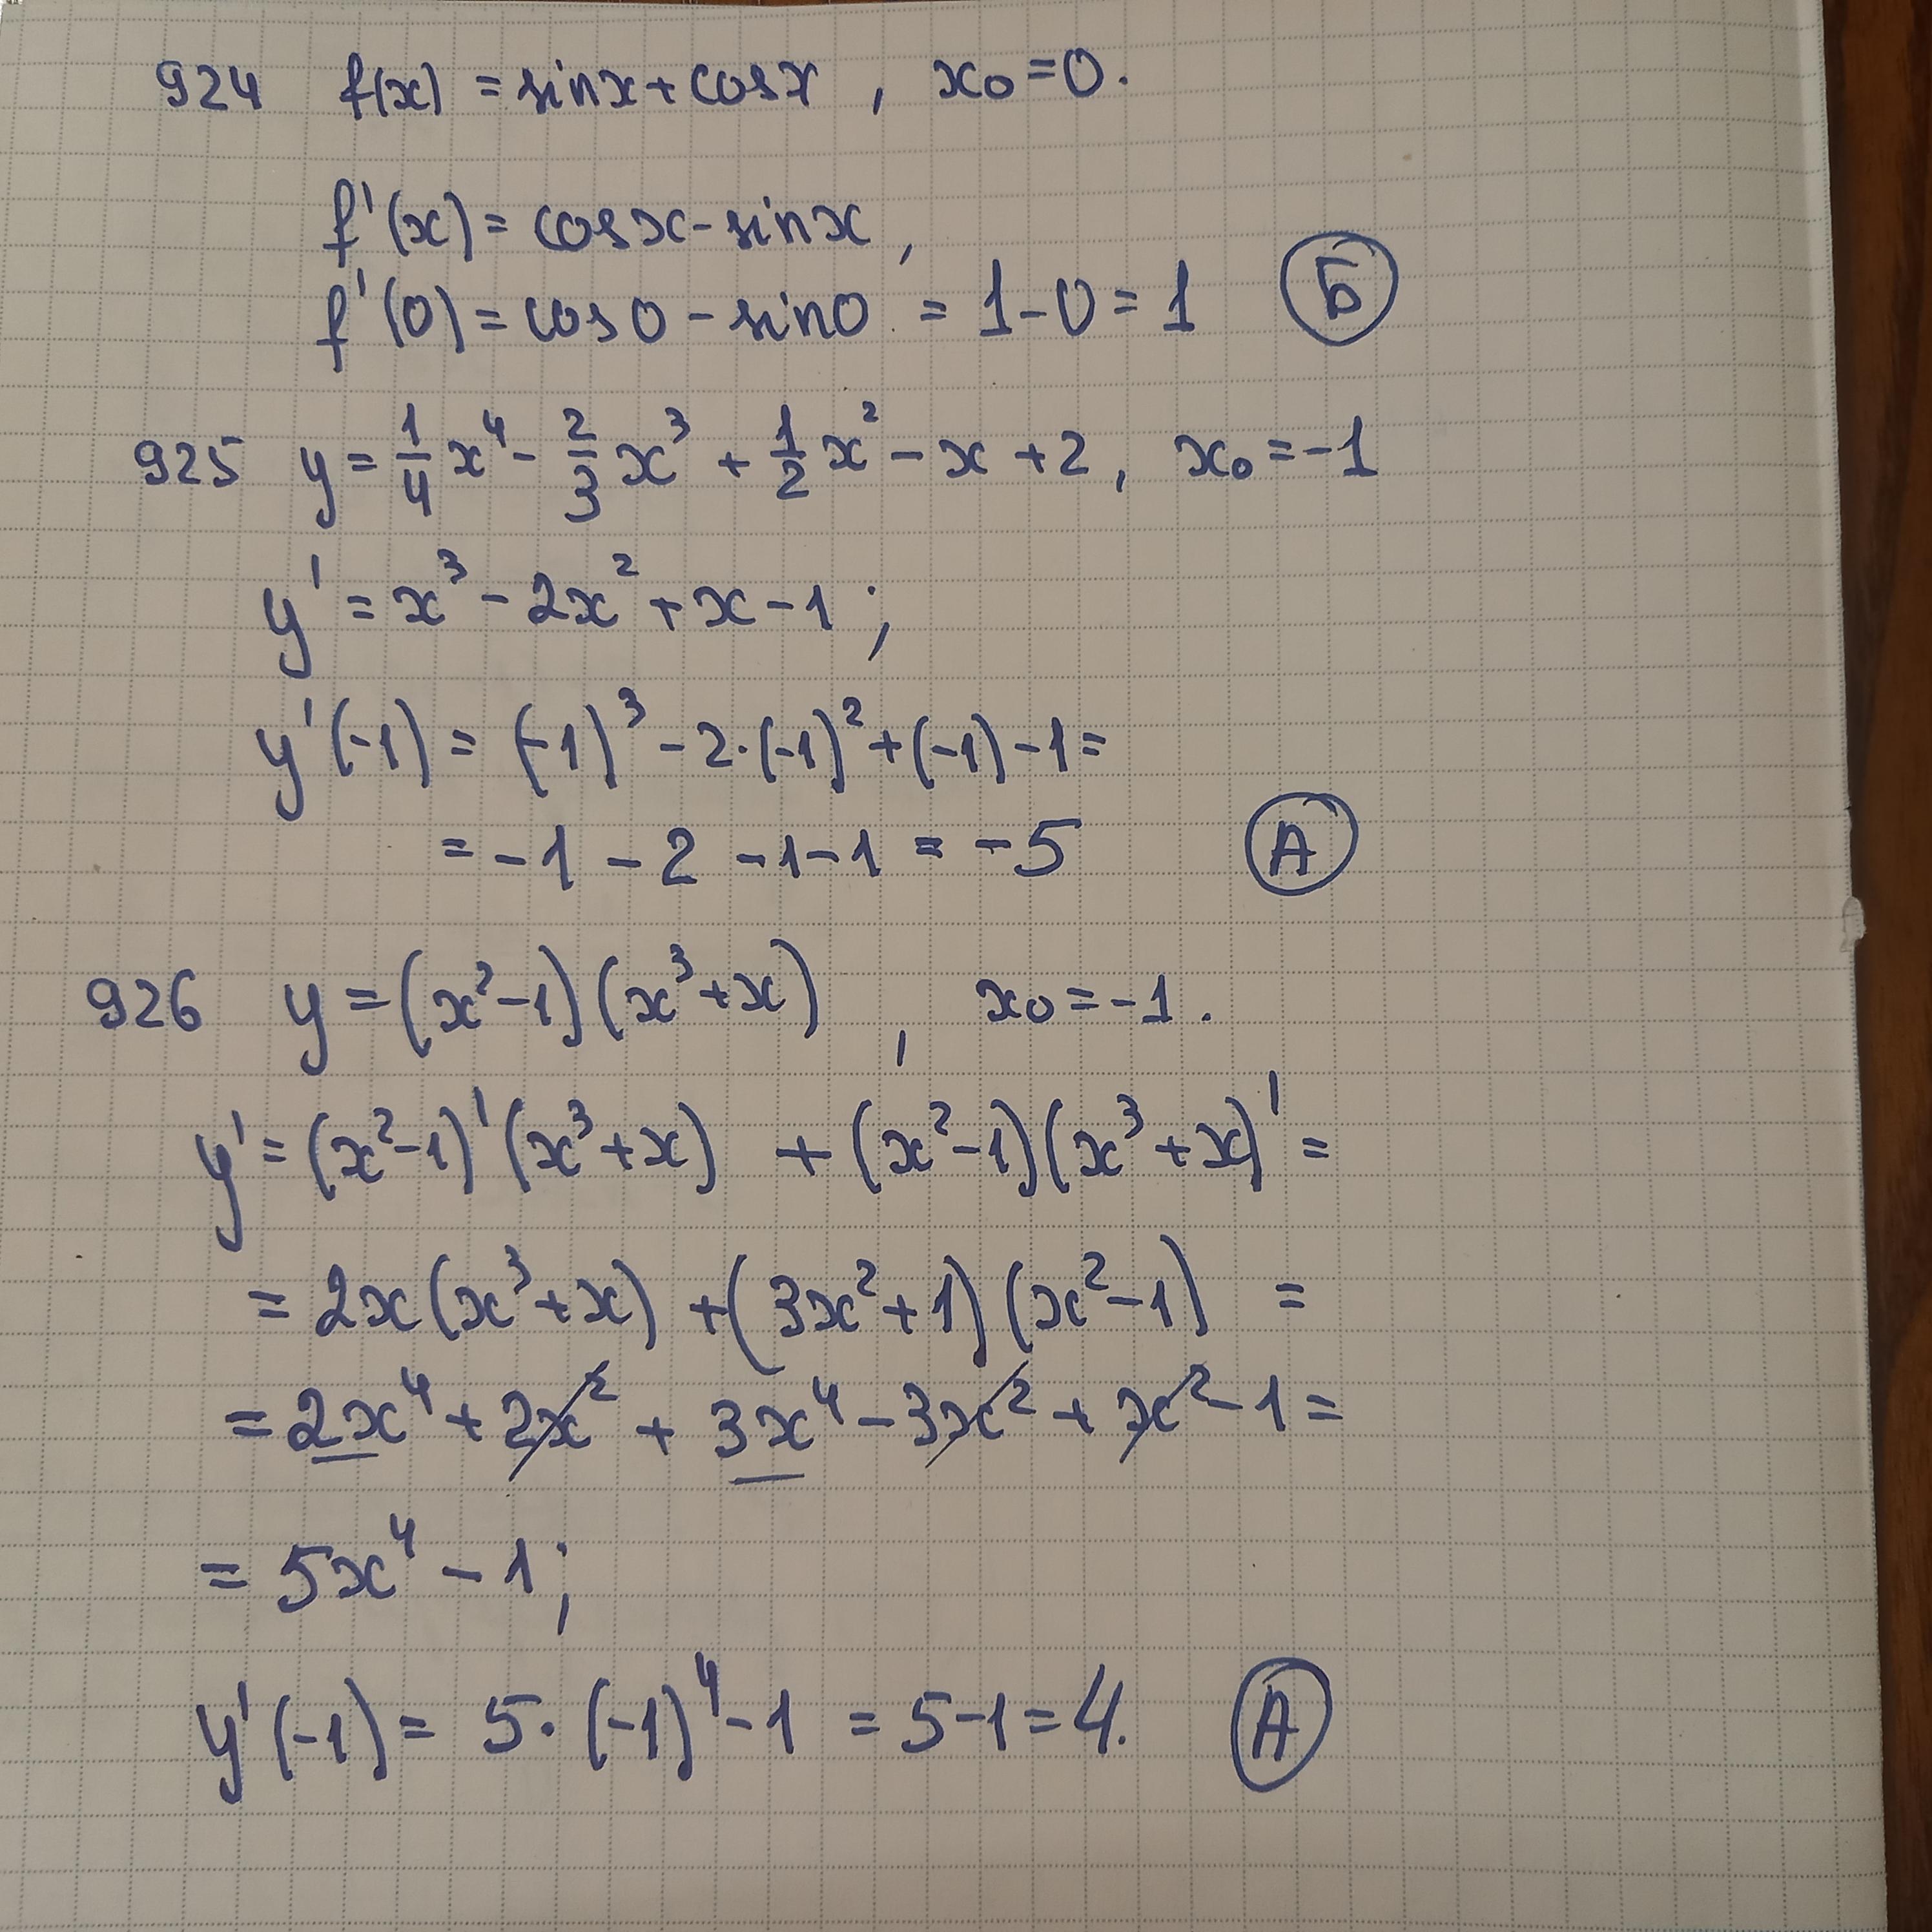 924 f(x) = sinx + cosx , x₀ = 0.
f'(x) = cosx - sinx ,
f'(0) = cos0 - sin0 = 1 - 0 = 1 Б
925 y = 1/4 x⁴ - 2/3 x³ + 1/2 x² - x + 2 , x₀ = -1
y' = x³ - 2x² + x - 1 ;
y'(-1) = (-1)³ - 2·(-1)² + (-1) - 1 =
= -1 - 2 - 1 - 1 = -5 А
926 y = (x² - 1)(x³ + x) , x₀ = -1.
y' = (x² - 1)'(x³ + x) + (x² - 1)(x³ + x)' =
= 2x(x³ + x) + (3x² + 1)(x² - 1) =
= 2x⁴ + 2x² + 3x⁴ - 3x² + x² - 1 =
= 5x⁴ - 1 ;
y'(-1) = 5·(-1)⁴ - 1 = 5 - 1 = 4. А